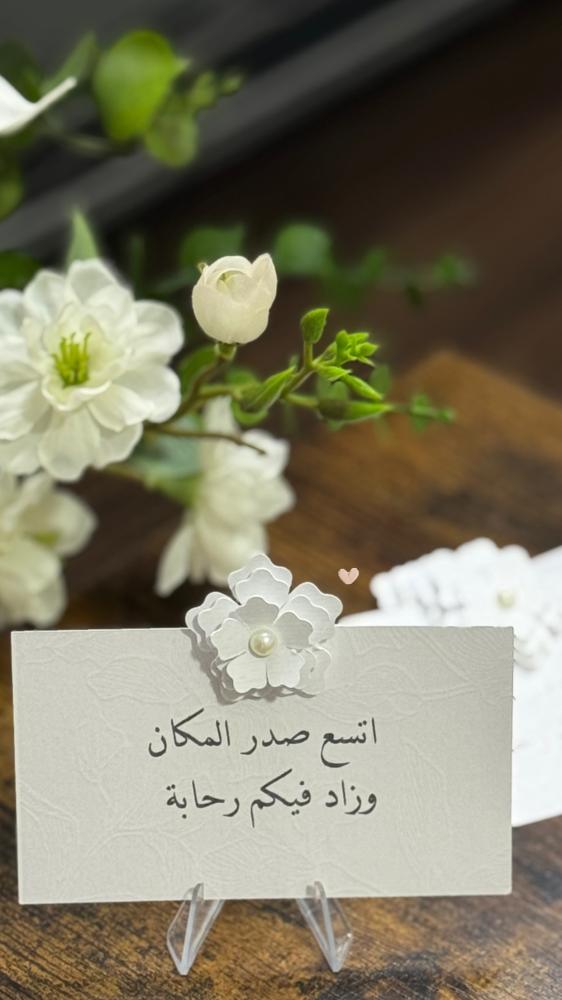 اتسع صدر المكان
وزاد فيكم رحابة